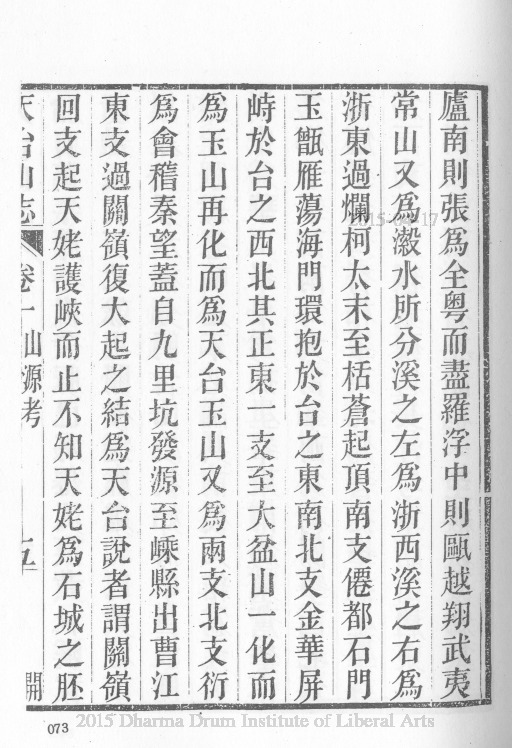 廬南則張爲全粤而盡羅浮中則甌越翔武夷
常山又爲瀫水所分溪之左爲浙西溪之右爲
浙東過爛柯太末至栝蒼起頂南支僊都石門
玉甑雁蕩海門環抱於台之東南北支金華屏
峙於台之西北其正東一支至大盆山一化而
爲玉山再化而爲天台玉山又爲兩支北支衍
爲會稽秦望蓋自九里坑發源至嵊縣出曹江
東支過關嶺復大起之結爲天台說者謂關嶺
回支起天姥護峽而止不知天姥爲石城之胚
天台山志 卷一 山源考 五 開
073
2015 Dharma Drum Institute of Liberal Arts